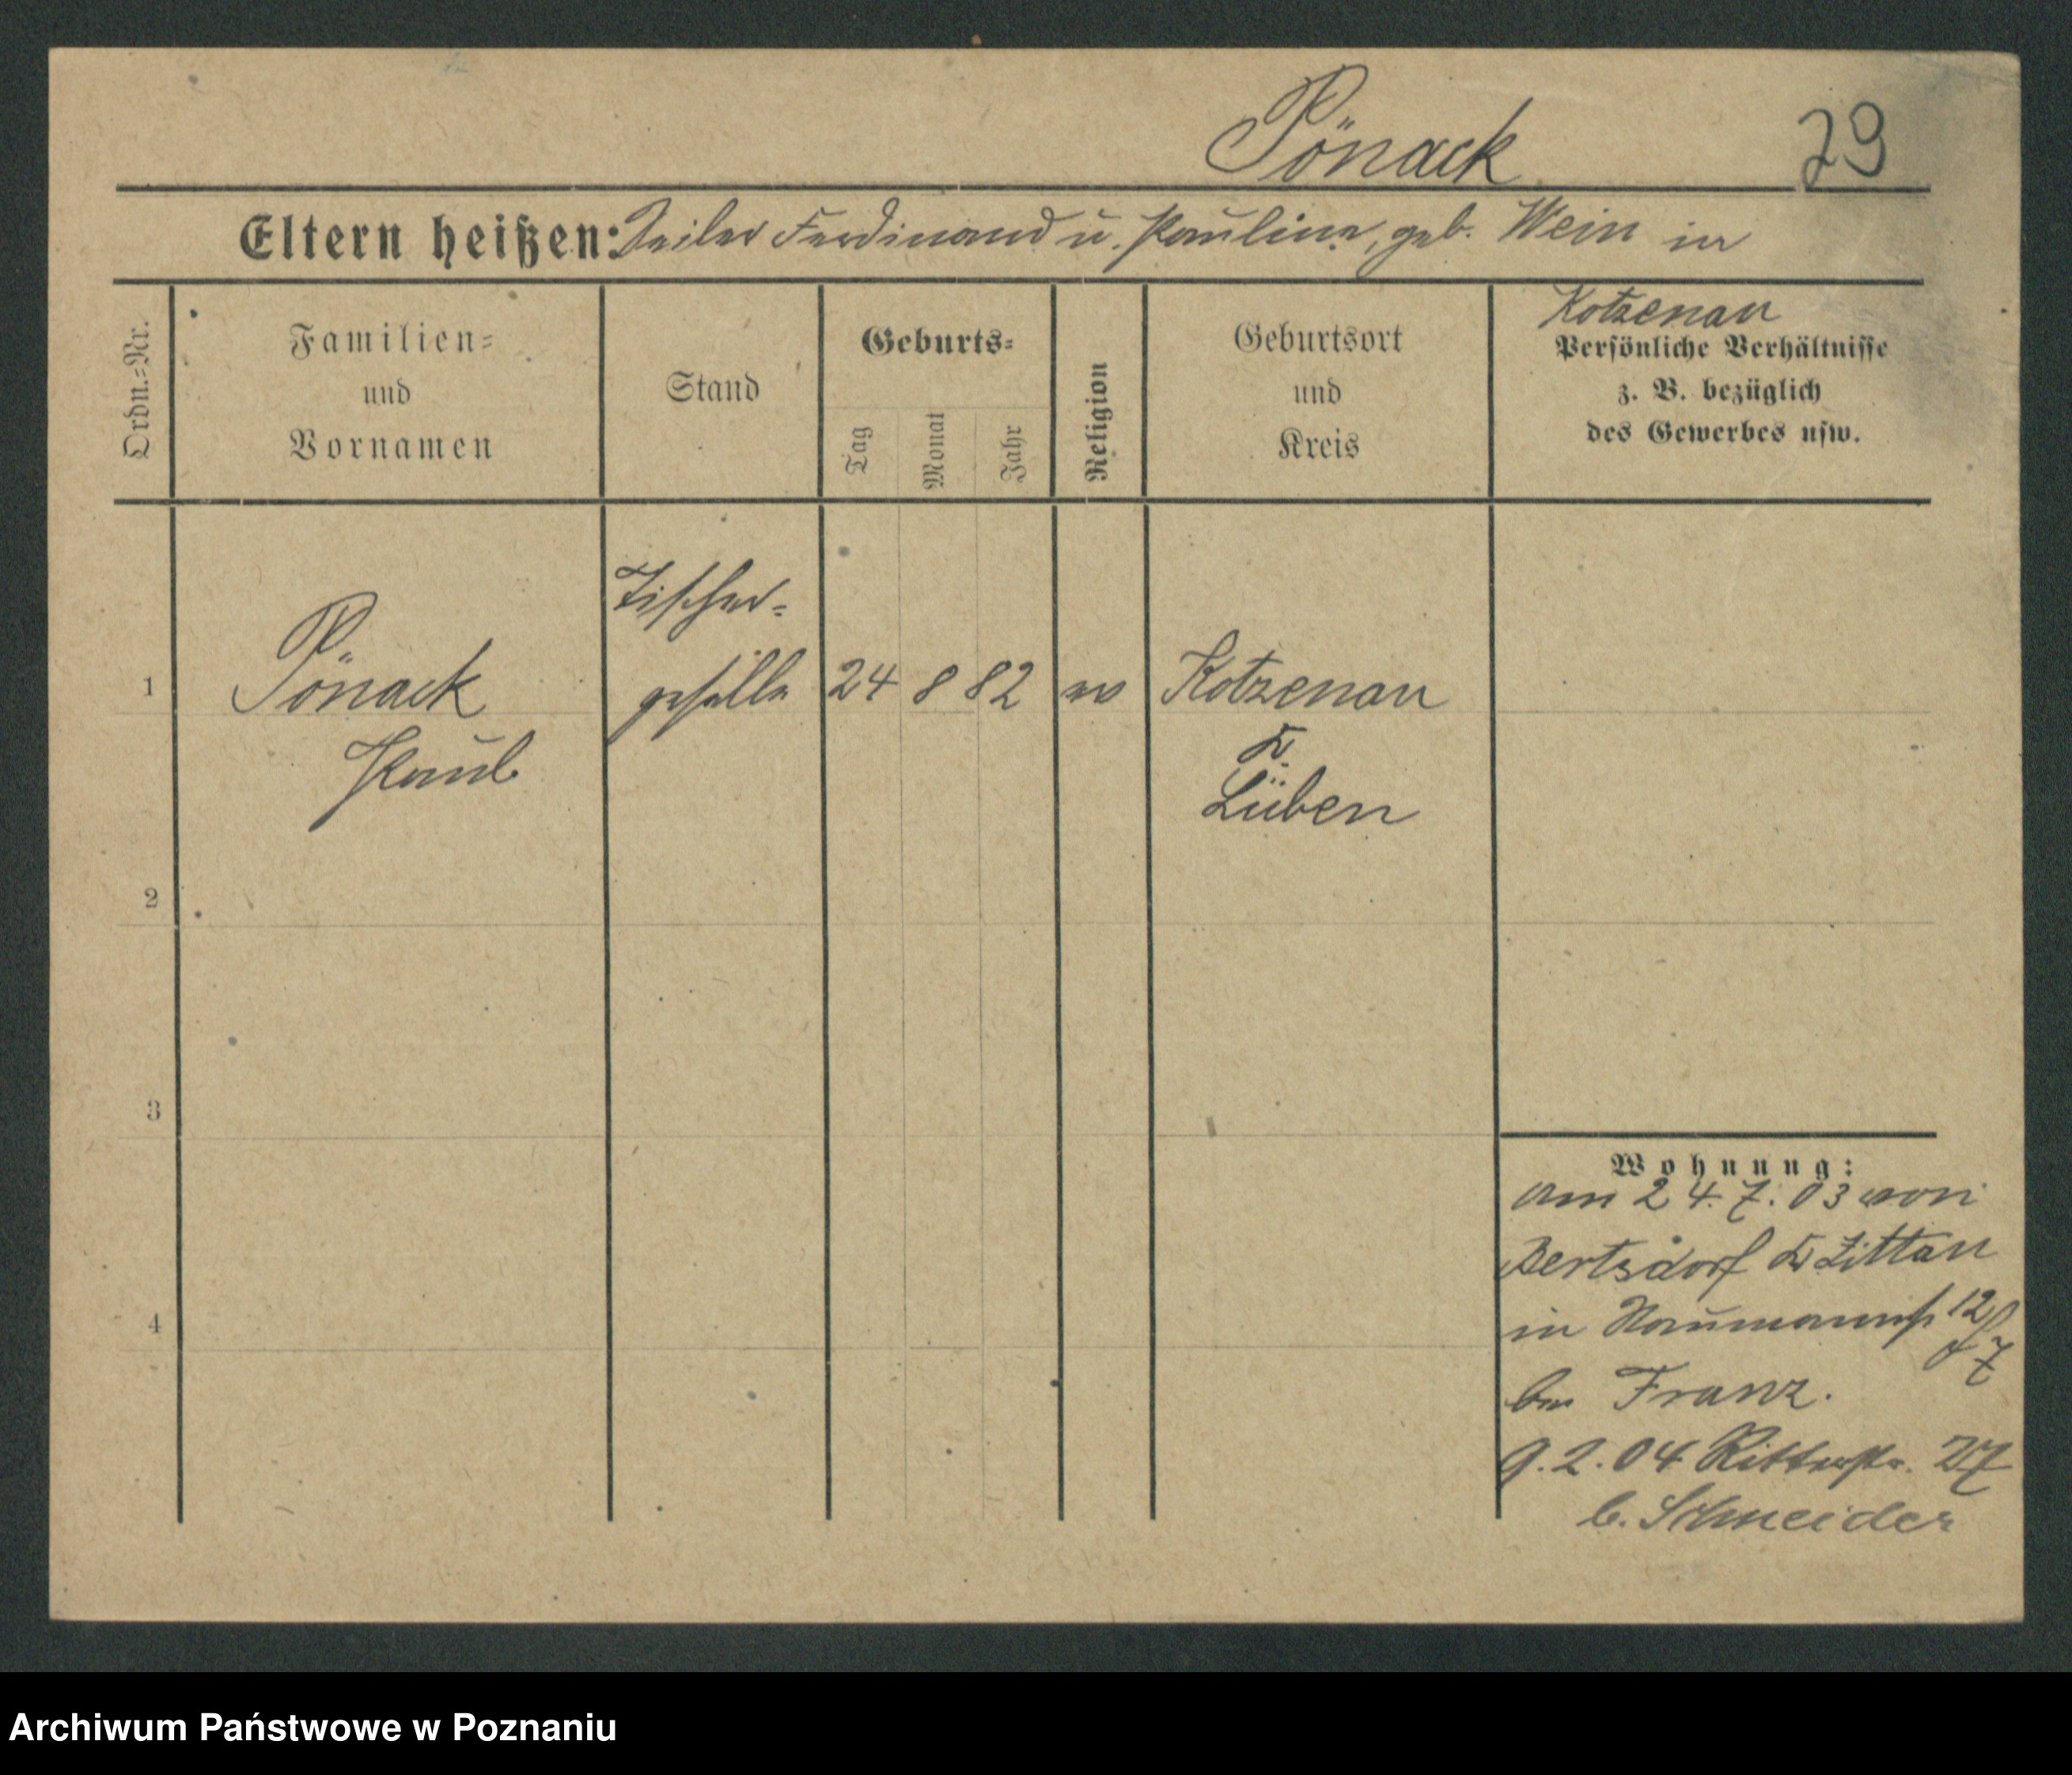 Pönack 29
Eltern heißen: Seiler Ferdinand u. Pauline, geb. Wein in
Kotzenau
Ordn.=Nr.
Familien=
und
Vornamen
Stand
Geburts=
Tag
Monat
Jahr
Religion
Geburtsort
und
Kreis
Persönliche Verhältnisse
z. B. bezüglich
des Gewerbes usw.
1
Pönack
Paul
Tischer=
geselle
24 8 82
ev
Kotzenau
Kr.
Lüben
2
3
4
Wohnung:
am 24.7.03 von
Bertsdorf Kr Zittau
in Naumannstr 12
7
bei Franz.
9.2.04 Ritterstr. 27
b. Schneider
Archiwum Państwowe w Poznaniu